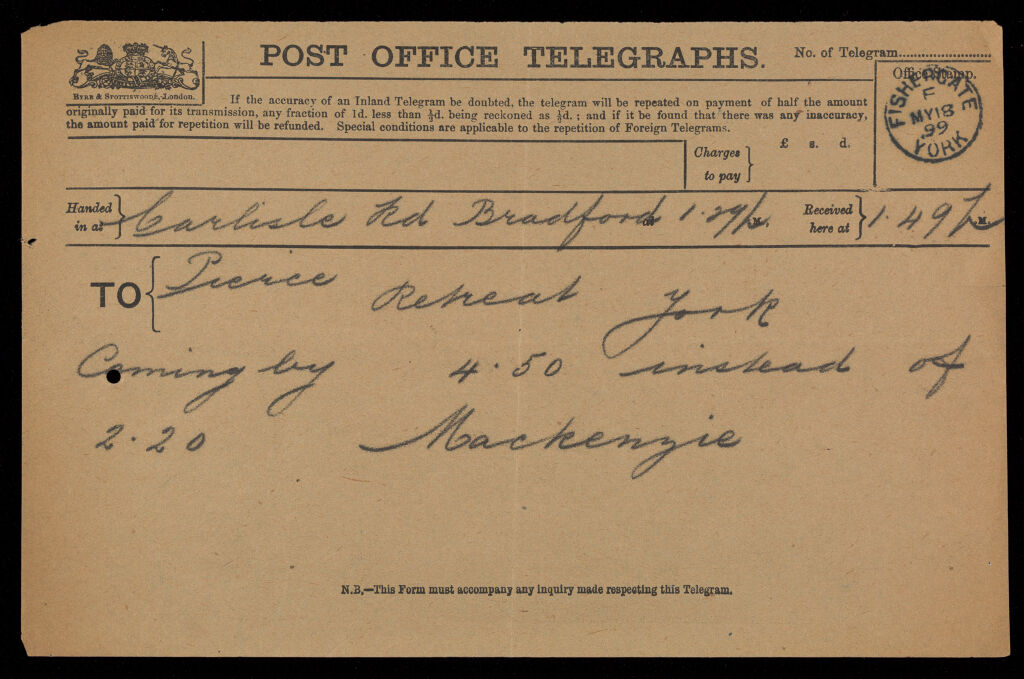 POST OFFICE TELEGRAPHS.
No. of Telegram
Office Stamp.
FISHERGATE
F
MY 18
99
YORK
EYRE & SPOTTISWOODE, London.
If the accuracy of an Inland Telegram be doubted, the telegram will be repeated on payment of half the amount
originally paid for its transmission, any fraction of 1d. less than ½d. being reckoned as ½d.; and if it be found that there was any inaccuracy,
the amount paid for repetition will be refunded. Special conditions are applicable to the repetition of Foreign Telegrams.
Charges to pay } £ s. d.
Handed in at } Carlisle Rd Bradford at 1.29 p M. Received here at } 1.49 p M
TO { Pierce Retreat York
Coming by 4.50 instead of
2.20 Mackenzie
N.B.—This Form must accompany any inquiry made respecting this Telegram.